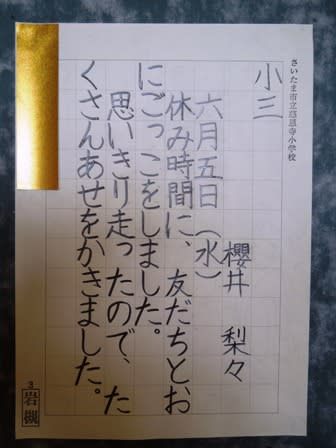 さいたま市立慈恩寺小学校
小三
櫻井 梨々
六月五日(水)
休み時間に、友だちとお
にごっこをしました。
思いきり走ったので、た
くさんあせをかきました。
3
岩槻